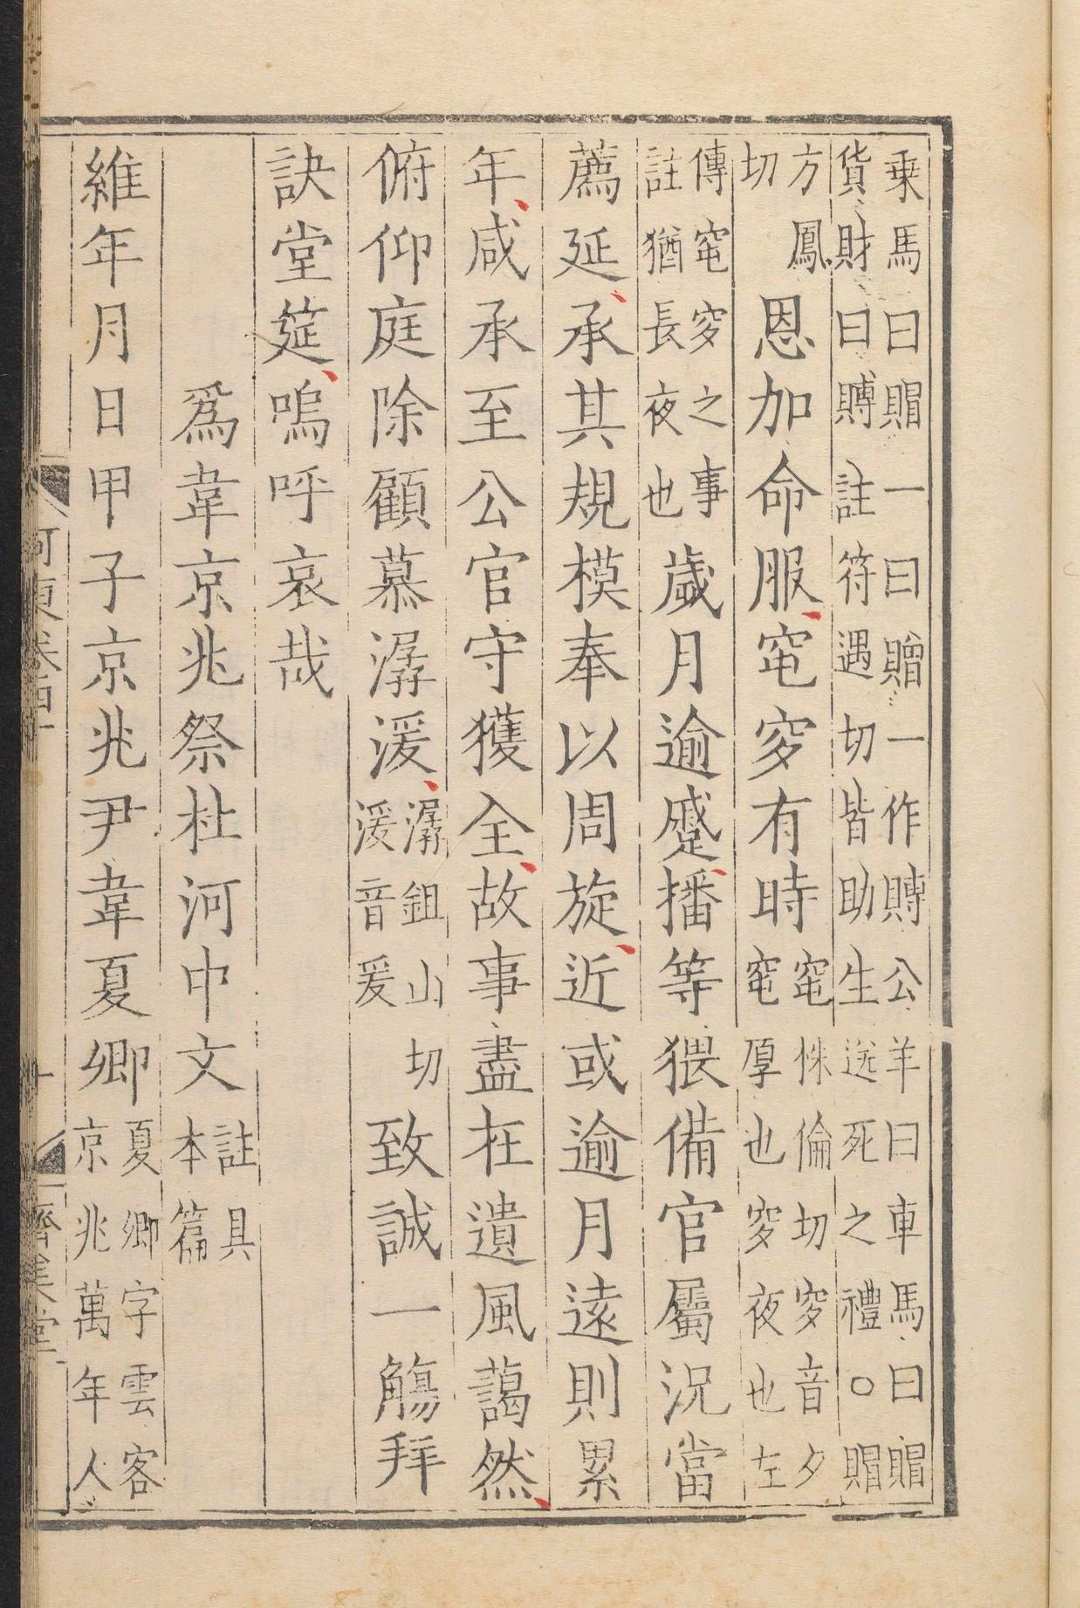 乗馬曰賵一曰贈一作賻公羊曰車馬曰賵
貨財曰賻註符遇切皆助生送死之禮○賵
方鳳
切
恩加命服窀穸有時
窀株倫切穸音夕
窀厚也穸夜也左
傳窀穸之事
註猶長夜也
歲月逾蹙播等猥備官屬況當
薦延承其規模奉以周旋近或逾月遠則累
年咸承至公官守獲全故事盡在遺風藹然
俯仰庭除顧慕潺湲
潺鉏山切
湲音爰
致誠一觴拜
訣堂筵嗚呼哀哉
爲韋京兆祭杜河中文
註具
本篇
維年月日甲子京兆尹韋夏卿
夏卿字雲客
京兆萬年人
河東卷四十
十
濟美堂